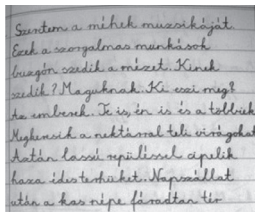 Szeretem a méhek muzsikáját.
Ezek a szorgalmas munkások
buzgón szedik a mézet. Kinek
szedik? Maguknak. Ki eszi meg?
Az emberek. Te is, én is és a többiek
Megkeresik a nektárral teli virágokat
Aztán lassú repüléssel cipelik
haza édes terhüket. Napszállat
után a kas népe fáradtan tér